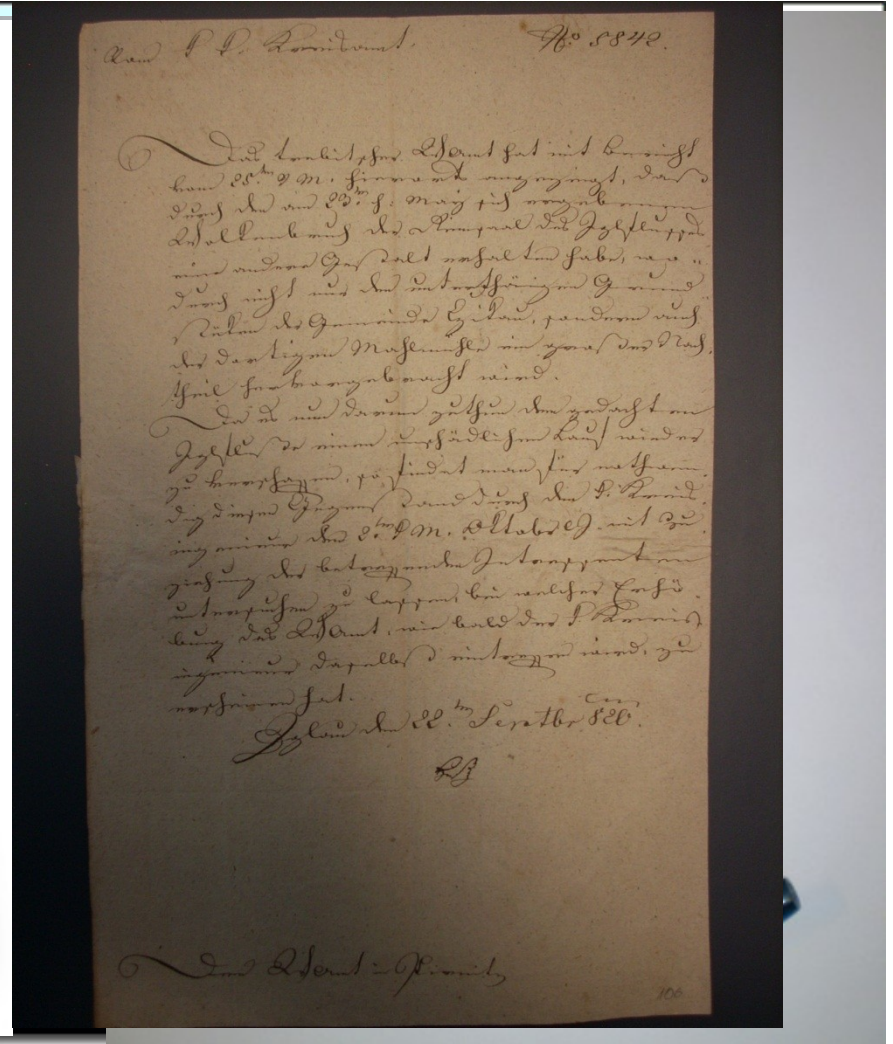 Vom k k. Kreisamt. No 8842.
Das trebitscher WAmt hat mit Bericht
vom 28ten v M. hierorts angezeigt, daß
durch den am 23ten h: May sich ergebenen
Wolkenbruch der Rinnsaal des Iglflusses
eine andere Gestalt erhalten habe, wo„
durch nicht nur den unterthänigen Grund
stüken der Gemeinde, sondern auch
der dortigen Mahlmühle ein grosser Nach„
theil hervorgebracht wird.
Da es nun darum zuthun dem gedachten
Iglfluße einen unschädlichen Lauf wieder
zu verschaffen, so findet man für nothwen„
dig diesen Gegenstand durch den k. Kreis„
ingenieur den 2ten k M. Oktober l J. mit Zu
ziehung der betreffenden Interessenten
untersuchen zu lassen, bei welcher Erhö„
bung das WAmt, wie bald der k Kreis
ingenieur daselbst eintreffen wird, zu
erscheinen hat.
Iglau den 22ten Septbr 820.
Dem WAmt in Pirnitz
106